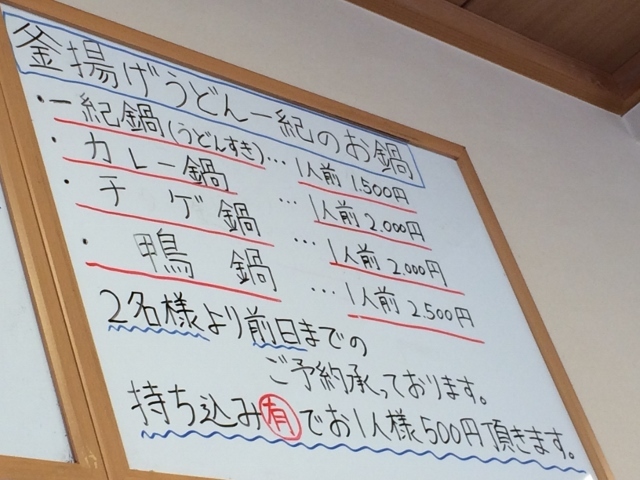 釜揚げうどん一紀のお鍋
・一紀鍋(うどんすき)…1人前 1.500円
・カレー鍋 …1人前 2.000円
・チゲ鍋 …1人前 2.000円
・鴨鍋 …1人前 2.500円
2名様より前日までの
ご予約承っております。
持ち込み有でお1人様500円頂きます。